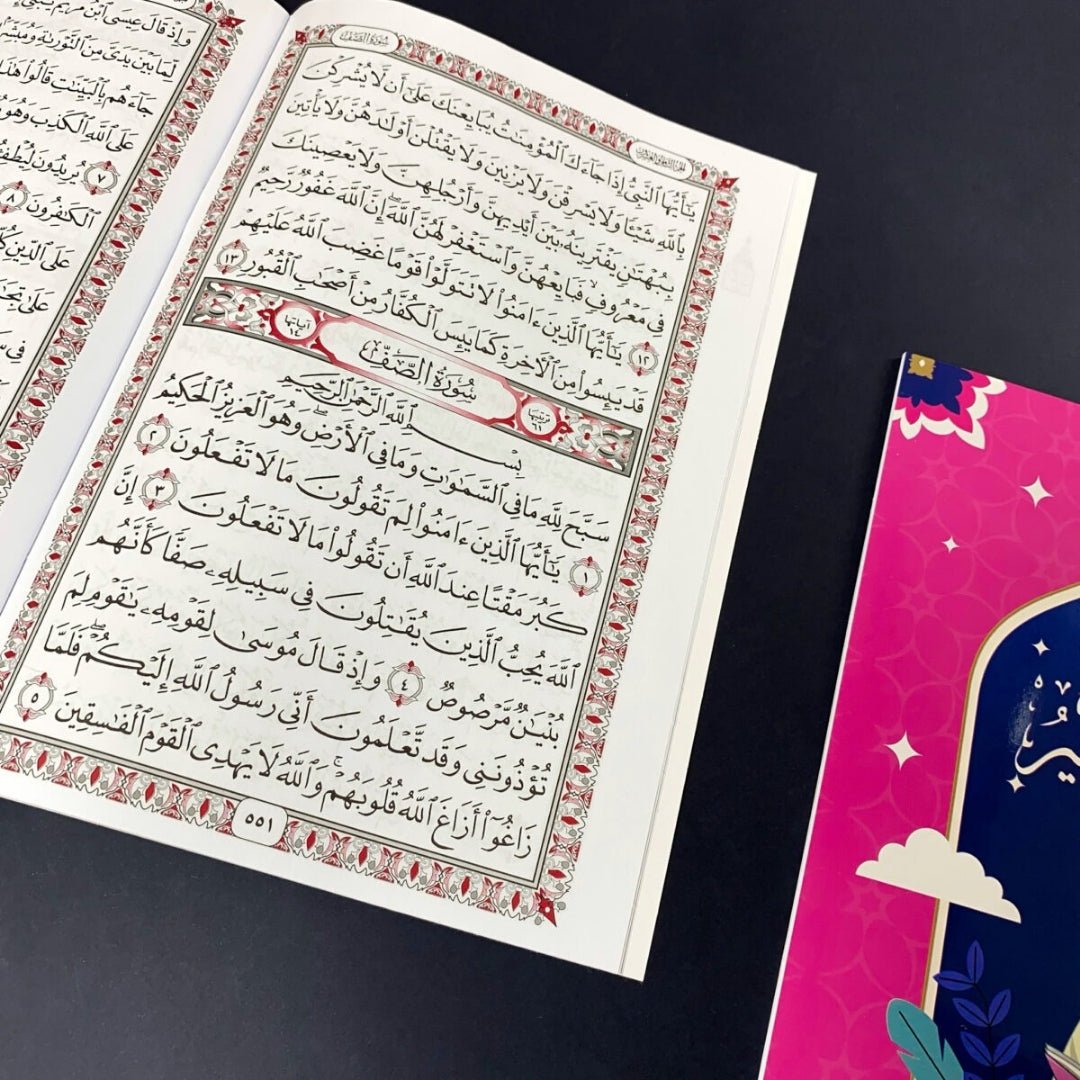 سُورَةُ الصَّفِّ
الجزء الثامن والعشرون
يَٰٓأَيُّهَا ٱلنَّبِيُّ إِذَا جَآءَكَ ٱلْمُؤْمِنَٰتُ يُبَايِعْنَكَ عَلَىٰٓ أَن لَّا يُشْرِكْنَ
بِٱللَّهِ شَيْـًٔا وَلَا يَسْرِقْنَ وَلَا يَزْنِينَ وَلَا يَقْتُلْنَ أَوْلَٰدَهُنَّ وَلَا يَأْتِينَ
بِبُهْتَٰنٍ يَفْتَرِينَهُۥ بَيْنَ أَيْدِيهِنَّ وَأَرْجُلِهِنَّ وَلَا يَعْصِينَكَ
فِى مَعْرُوفٍ فَبَايِعْهُنَّ وَٱسْتَغْفِرْ لَهُنَّ ٱللَّهَ إِنَّ ٱللَّهَ غَفُورٌ رَّحِيمٌ
١٢ يَٰٓأَيُّهَا ٱلَّذِينَ ءَامَنُوا۟ لَا تَتَوَلَّوْا۟ قَوْمًا غَضِبَ ٱللَّهُ عَلَيْهِمْ
قَدْ يَئِسُوا۟ مِنَ ٱلْـَٔاخِرَةِ كَمَا يَئِسَ ٱلْكُفَّارُ مِنْ أَصْحَٰبِ ٱلْقُبُورِ ١٣
ترتيبها ٦١ سُورَةُ الصَّفِّ آياتها ١٤
بِسْمِ ٱللَّهِ ٱلرَّحْمَٰنِ ٱلرَّحِيمِ
سَبَّحَ لِلَّهِ مَا فِى ٱلسَّمَٰوَٰتِ وَمَا فِى ٱلْأَرْضِ ۖ وَهُوَ ٱلْعَزِيزُ ٱلْحَكِيمُ
١ يَٰٓأَيُّهَا ٱلَّذِينَ ءَامَنُوا۟ لِمَ تَقُولُونَ مَا لَا تَفْعَلُونَ ٢
كَبُرَ مَقْتًا عِندَ ٱللَّهِ أَن تَقُولُوا۟ مَا لَا تَفْعَلُونَ ٣ إِنَّ
ٱللَّهَ يُحِبُّ ٱلَّذِينَ يُقَٰتِلُونَ فِى سَبِيلِهِۦ صَفًّا كَأَنَّهُم
بُنْيَٰنٌ مَّرْصُوصٌ ٤ وَإِذْ قَالَ مُوسَىٰ لِقَوْمِهِۦ يَٰقَوْمِ لِمَ
تُؤْذُونَنِى وَقَد تَّعْلَمُونَ أَنِّى رَسُولُ ٱللَّهِ إِلَيْكُمْ ۖ فَلَمَّا
زَاغُوٓا۟ أَزَاغَ ٱللَّهُ قُلُوبَهُمْ ۚ وَٱللَّهُ لَا يَهْدِى ٱلْقَوْمَ ٱلْفَٰسِقِينَ ٥
٥٥١
وَإِذْ قَالَ عِيسَى ٱبْنُ مَرْيَمَ يَٰبَنِىٓ
لِّمَا بَيْنَ يَدَىَّ مِنَ ٱلتَّوْرَىٰةِ وَمُبَشِّرًۢا
جَآءَهُم بِٱلْبَيِّنَٰتِ قَالُوا۟ هَٰذَا
عَلَى ٱللَّهِ ٱلْكَذِبَ وَهُوَ
٧ يُرِيدُونَ لِيُطْفِـُٔوا۟
ٱلْكَٰفِرُونَ ٨
عَلَى ٱلدِّينِ
عَلَىٰ
فِى